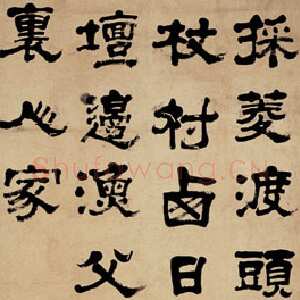 採菱渡頭
杖村西日
壇邊漁父
裏人家
Shufawang.CN